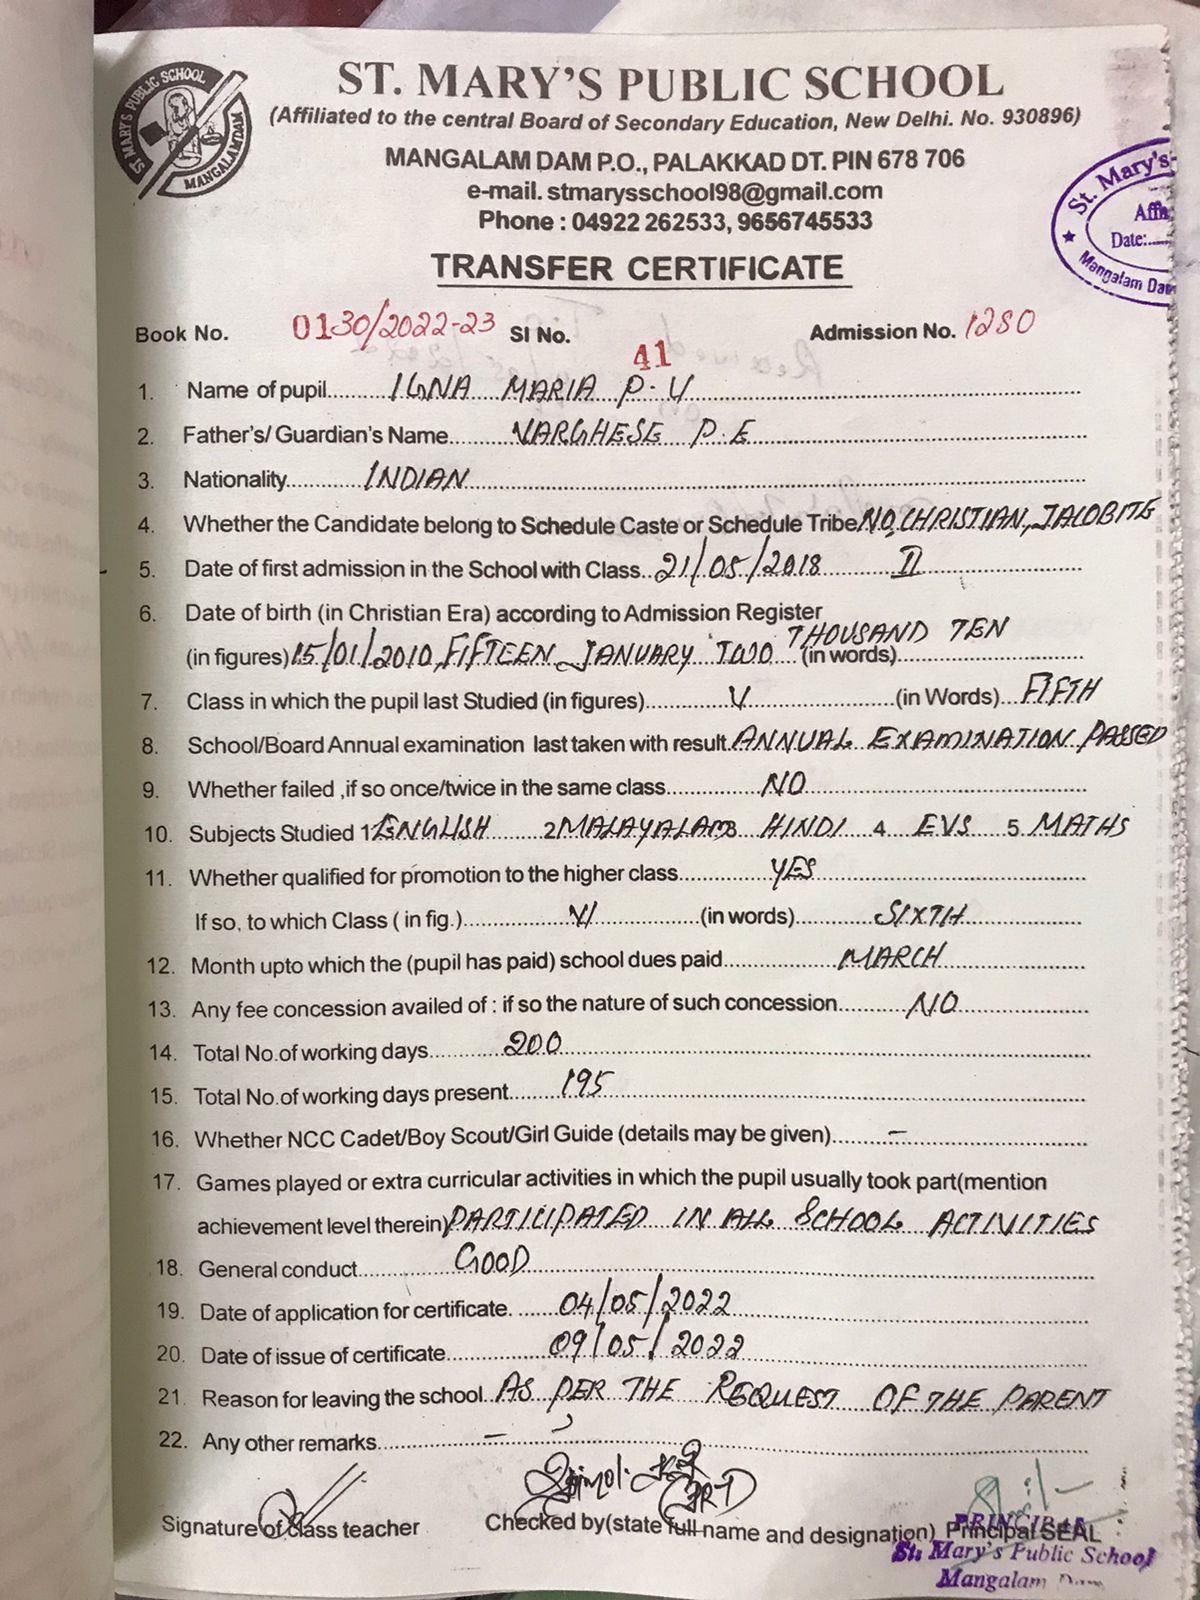 ST. MARY'S PUBLIC SCHOOL
MANGALAMDAM
ST. MARY'S PUBLIC SCHOOL
(Affiliated to the central Board of Secondary Education, New Delhi. No. 930896)
MANGALAM DAM P.O., PALAKKAD DT. PIN 678 706
e-mail. stmarysschool98@gmail.com
Phone : 04922 262533, 9656745533
St. Mary's
Affi
Date:......
Mangalam Dam
TRANSFER CERTIFICATE
Book No. 0130/2022-23 Sl No. 41 Admission No. 1280
1. Name of pupil....... IGNA MARIA P.V
2. Father's/ Guardian's Name...... VARGHESE P.E
3. Nationality......... INDIAN
4. Whether the Candidate belong to Schedule Caste or Schedule Tribe NO, CHRISTIAN, JACOBITE
5. Date of first admission in the School with Class.. 21/05/2018 II
6. Date of birth (in Christian Era) according to Admission Register
(in figures) 15/01/2010, FIFTEEN JANUARY TWO THOUSAND TEN (in words)
7. Class in which the pupil last Studied (in figures)........ V (in Words)... FIFTH
8. School/Board Annual examination last taken with result. ANNUAL EXAMINATION PASSED
9. Whether failed ,if so once/twice in the same class......... NO
10. Subjects Studied 1 ENGLISH 2 MALAYALAM 3 HINDI 4 EVS 5 MATHS
11. Whether qualified for promotion to the higher class......... YES
If so, to which Class ( in fig.)......... VI (in words)......... SIXTH
12. Month upto which the (pupil has paid) school dues paid......... MARCH
13. Any fee concession availed of : if so the nature of such concession......... NO
14. Total No.of working days......... 200
15. Total No.of working days present...... 195
16. Whether NCC Cadet/Boy Scout/Girl Guide (details may be given)...... –
17. Games played or extra curricular activities in which the pupil usually took part(mention
achievement level therein) PARTICIPATED IN ALL SCHOOL ACTIVITIES
18. General conduct......... GOOD
19. Date of application for certificate. ...... 04/05/2022
20. Date of issue of certificate......... 09/05/2022
21. Reason for leaving the school.. AS PER THE REQUEST OF THE PARENT
22. Any other remarks......... –
Signature of class teacher Checked by(state full name and designation) Principal SEAL
PRINCIPAL
St. Mary's Public School
Mangalam Dam